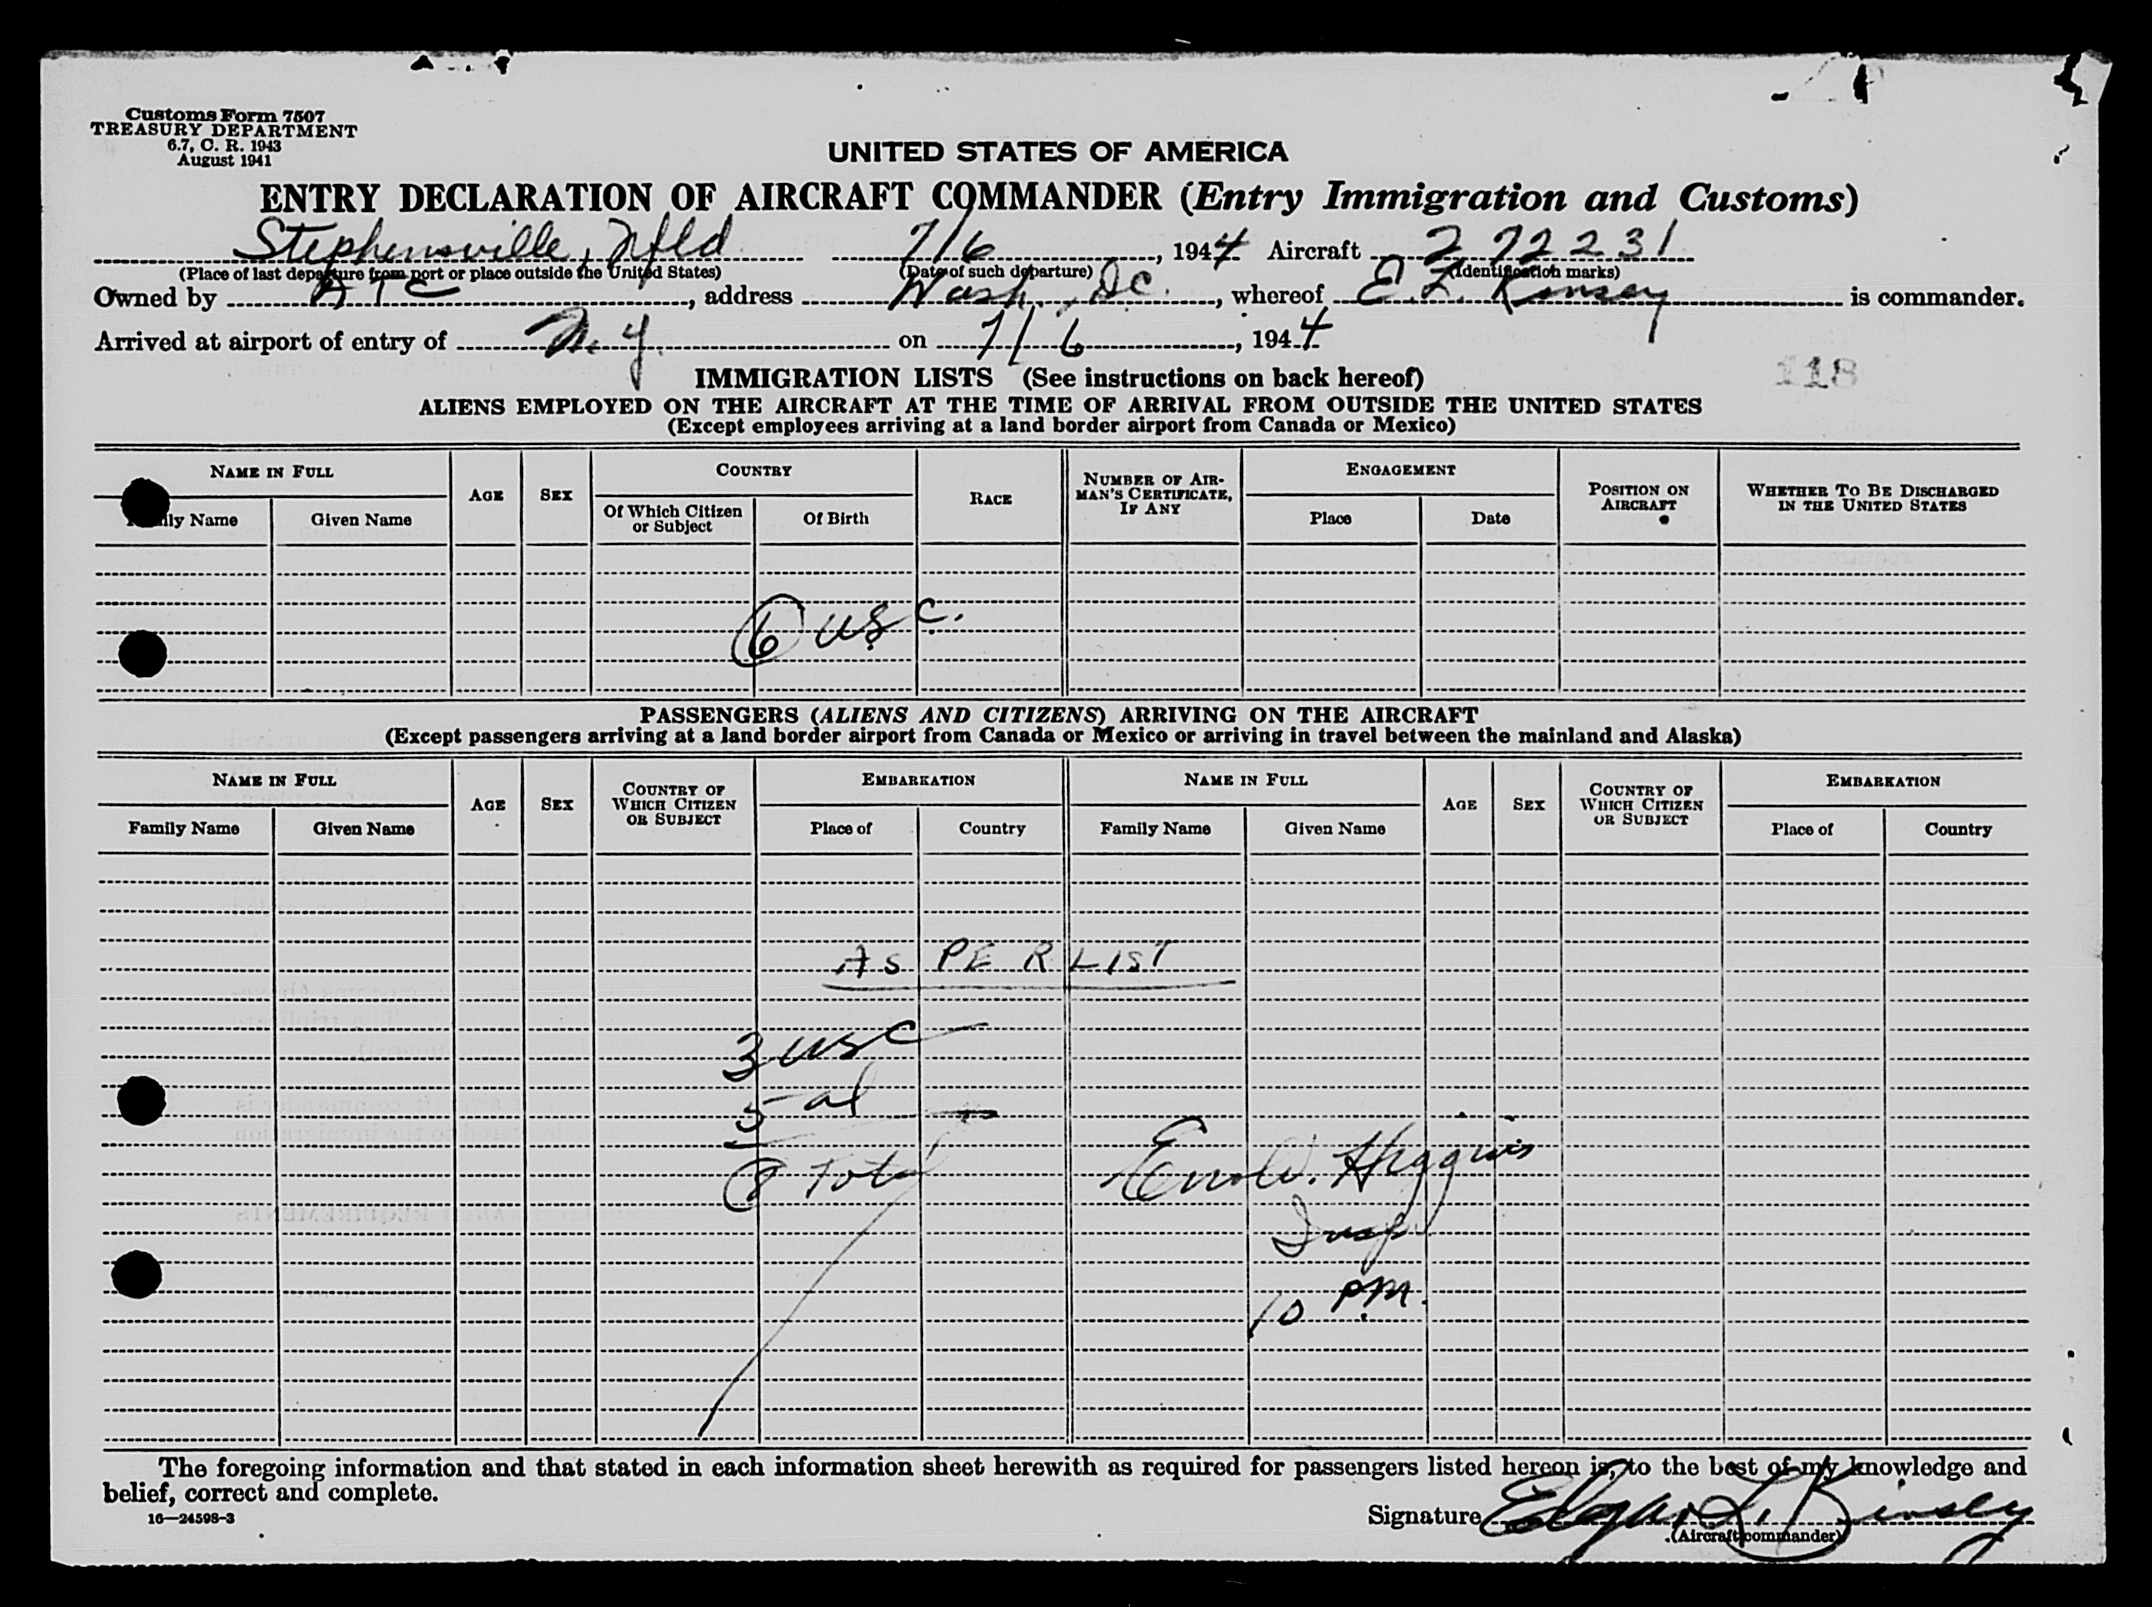 Customs Form 7507
TREASURY DEPARTMENT
6.7, C. R. 1943
August 1941
UNITED STATES OF AMERICA
ENTRY DECLARATION OF AIRCRAFT COMMANDER (Entry Immigration and Customs)
Stephensville, Nfld 7/6, 1944 Aircraft 272231
(Place of last departure from port or place outside the United States) (Date of such departure) (Identification marks)
Owned by ATC, address Wash. DC., whereof E. L. Kinsey is commander.
Arrived at airport of entry of N.Y. on 7/6, 1944
118
IMMIGRATION LISTS (See instructions on back hereof)
ALIENS EMPLOYED ON THE AIRCRAFT AT THE TIME OF ARRIVAL FROM OUTSIDE THE UNITED STATES
(Except employees arriving at a land border airport from Canada or Mexico)
NAME IN FULL AGE SEX COUNTRY RACE NUMBER OF AIRMAN'S CERTIFICATE, IF ANY ENGAGEMENT POSITION ON AIRCRAFT WHETHER TO BE DISCHARGED IN THE UNITED STATES
Family Name Given Name Of Which Citizen or Subject Of Birth Place Date
6 USC.
PASSENGERS (ALIENS AND CITIZENS) ARRIVING ON THE AIRCRAFT
(Except passengers arriving at a land border airport from Canada or Mexico or arriving in travel between the mainland and Alaska)
NAME IN FULL AGE SEX COUNTRY OF WHICH CITIZEN OR SUBJECT EMBARKATION NAME IN FULL AGE SEX COUNTRY OF WHICH CITIZEN OR SUBJECT EMBARKATION
Family Name Given Name Place of Country Family Name Given Name Place of Country
AS PER LIST
3 USC
5 al
8 Total
Higgins
Insp
10 PM.
The foregoing information and that stated in each information sheet herewith as required for passengers listed hereon is, to the best of my knowledge and
belief, correct and complete.
Signature Edgar L. Kinsey
(Aircraft commander)
16—24598-3